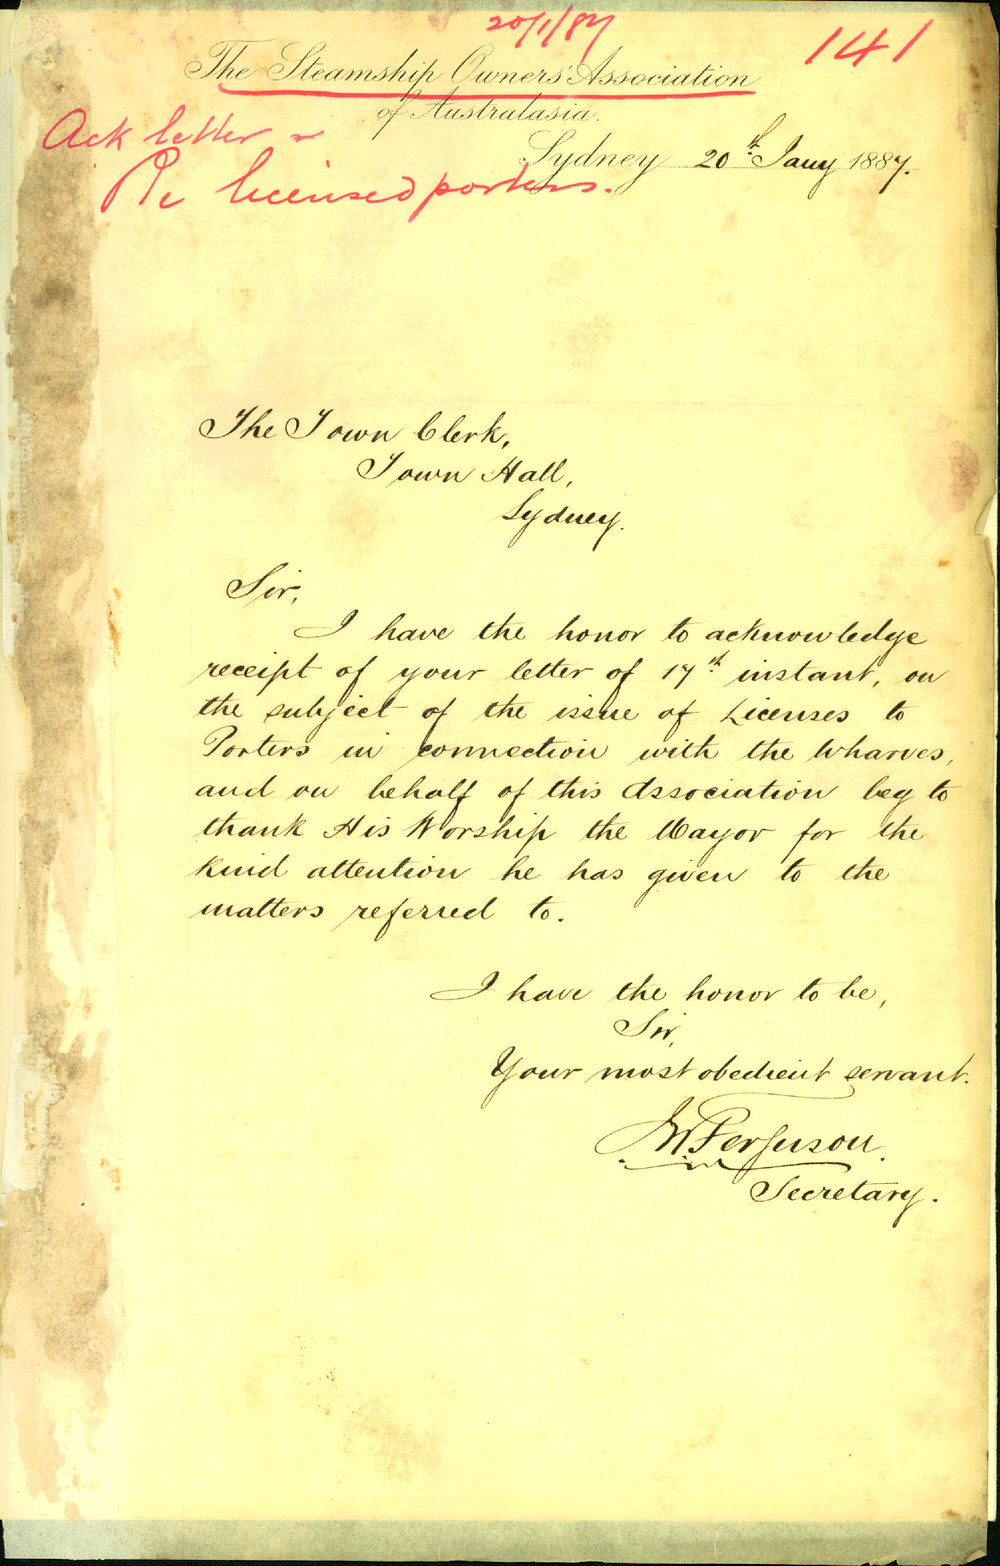 20/1/87
141
The Steamship Owners' Association
of Australasia.
Ack letter
Re licensed porters.
Sydney 20th Jany 1887.
The Town Clerk,
Town Hall,
Sydney.
Sir,
I have the honor to acknowledge
receipt of your letter of 17th instant, on
the subject of the issue of Licenses to
Porters in connection with the Wharves,
and on behalf of this Association beg to
thank His Worship the Mayor for the
kind attention he has given to the
matters referred to.
I have the honor to be,
Sir,
Your most obedient servant.
Ferguson.
Secretary.